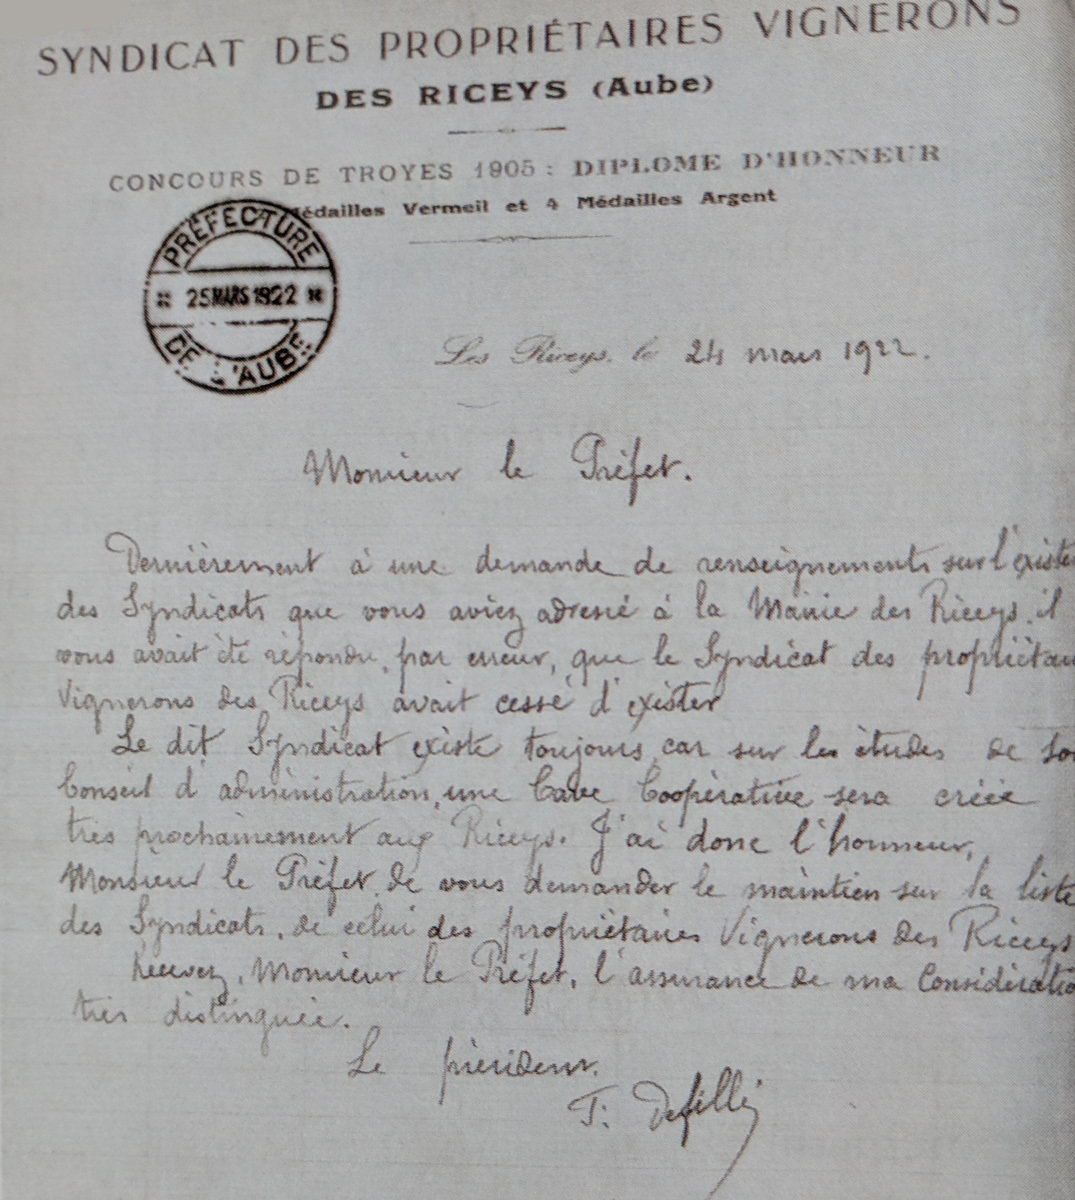 SYNDICAT DES PROPRIÉTAIRES VIGNERONS
DES RICEYS (Aube)
CONCOURS DE TROYES 1905 : DIPLOME D'HONNEUR
Médailles Vermeil et 4 Médailles Argent
PRÉFECTURE
25 MARS 1922
DE L'AUBE
Les Riceys, le 24 mars 1922.
Monsieur le Préfet.
Dernièrement à une demande de renseignements sur l'existe
des Syndicats que vous aviez adressé à la Mairie des Riceys, il
vous avait été répondu, par erreur, que le Syndicat des propriétai
Vignerons des Riceys avait cessé d'exister
Le dit Syndicat existe toujours, car sur les études de so
Conseil d'administration, une Cave Coopérative sera créée
très prochainement aux Riceys. J'ai donc l'honneur,
Monsieur le Préfet, de vous demander le maintien sur la liste
des Syndicats, de celui des propriétaires Vignerons des Riceys
Recevez, Monsieur le Préfet, l'assurance de ma Considératio
très distinguée.
Le président.